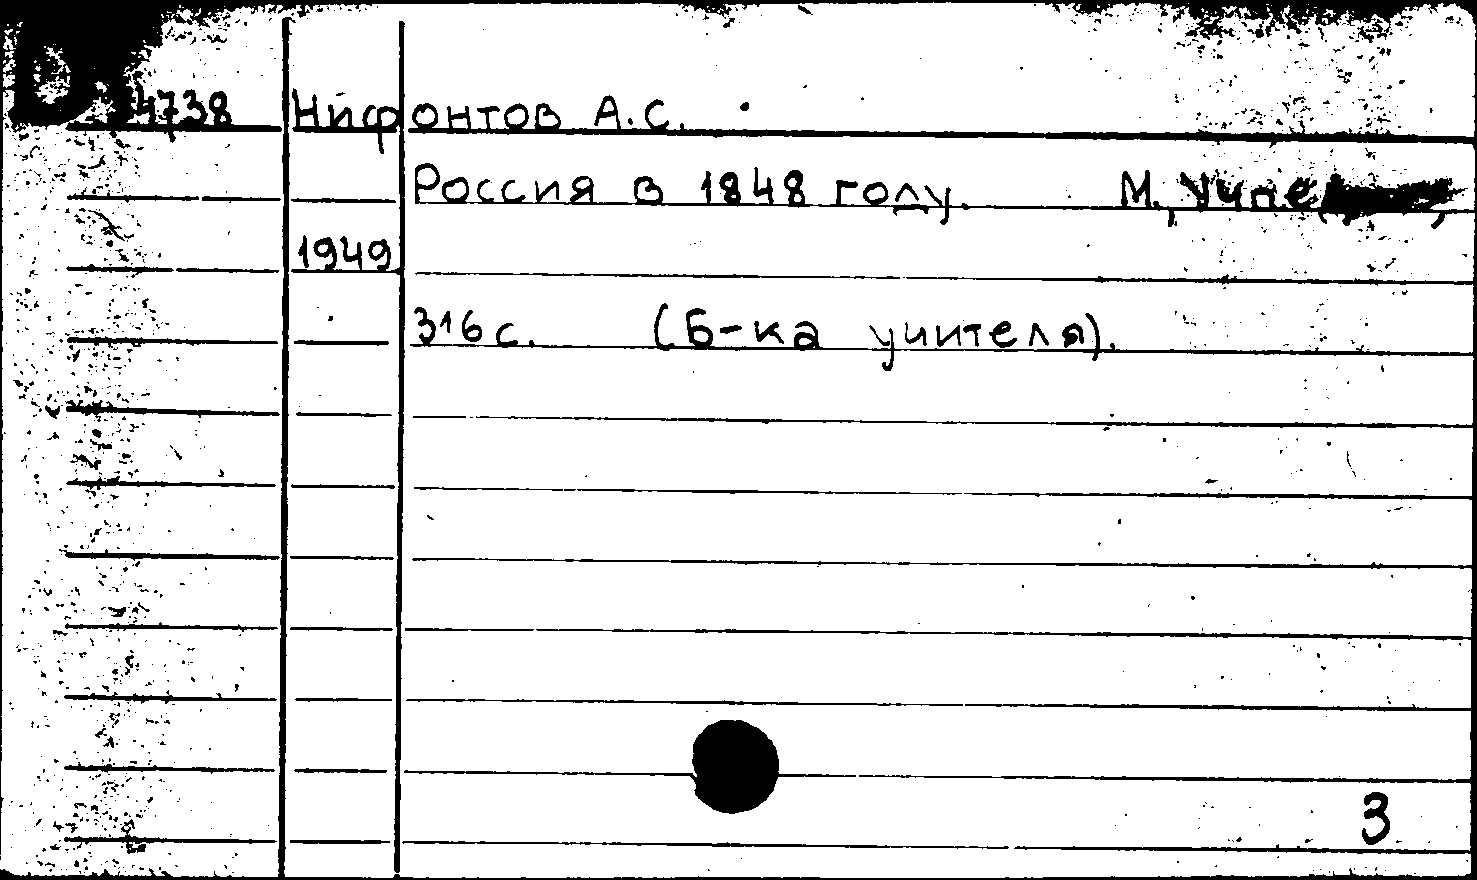 Нифонтов А.С.
Россия в 1848 году. М.,
1949
316 с. (Б-ка учителя).
3